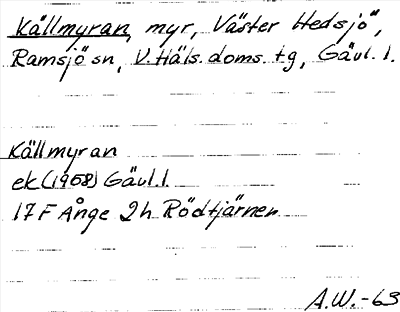 Källmyran, myr, Väster Hedsjö,
Ramsjö sn, V. Häls. doms. t.g, Gävl. l.
Källmyran
ek (1958) Gävl. l.
17 F Ånge 2h Rödtjärnen
A.W.-63